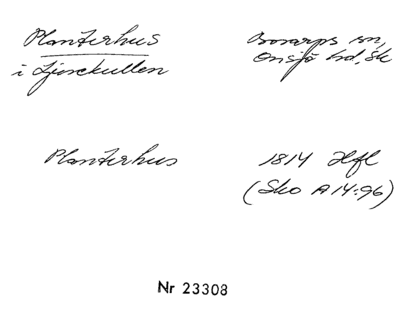 Planterhus
i Ljunekullen
Bosarps sn,
Onsjö hd, Sk
Planterhus
1814 Hfl
(Sko A 14:96)
Nr 23308